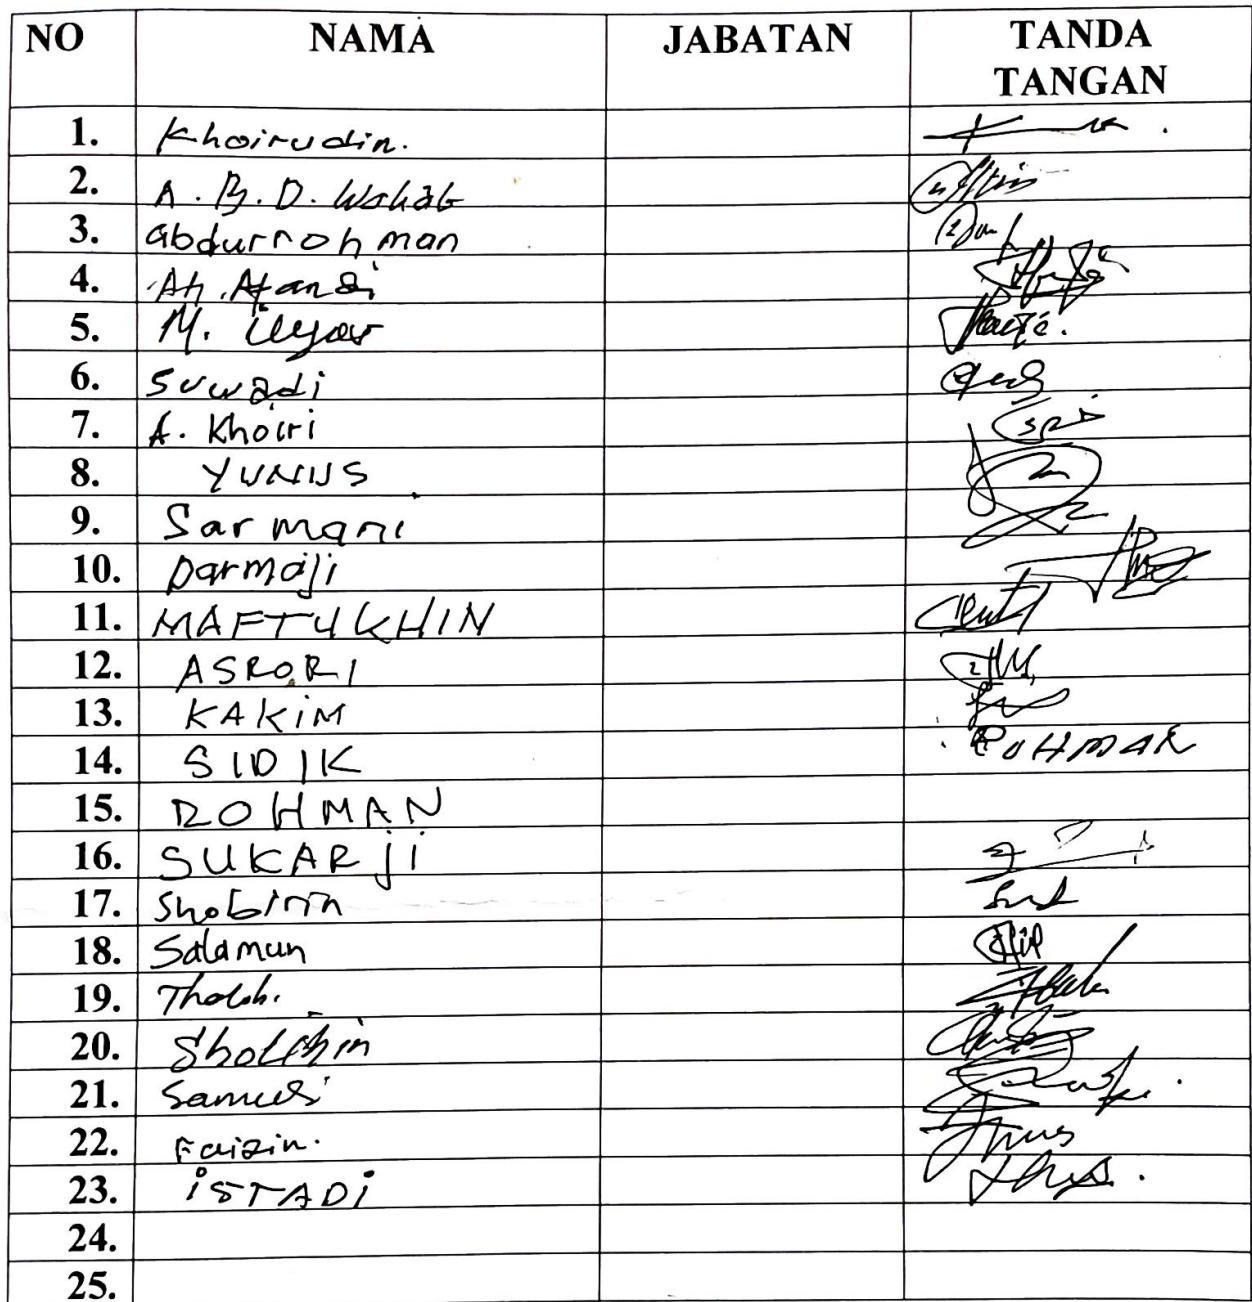 NO NAMA JABATAN TANDA TANGAN
1. Khoirudin.
2. A.B.D. Wahab
3. abdurrohman
4. Ah. Afandi
5. M. Ilyas
6. Suwadi
7. A. Khoiri
8. YUNUS
9. Sarmani
10. Darmaji
11. MAFTUKHIN
12. ASRORI
13. KAKiM
14. SIDIK ROHMAN
15. ROHMAN
16. SUKARji
17. Shobirin
18. Salamun
19. 
20. Sholikhin
21. 
22. Faizin.
23. iSTADi
24.
25.